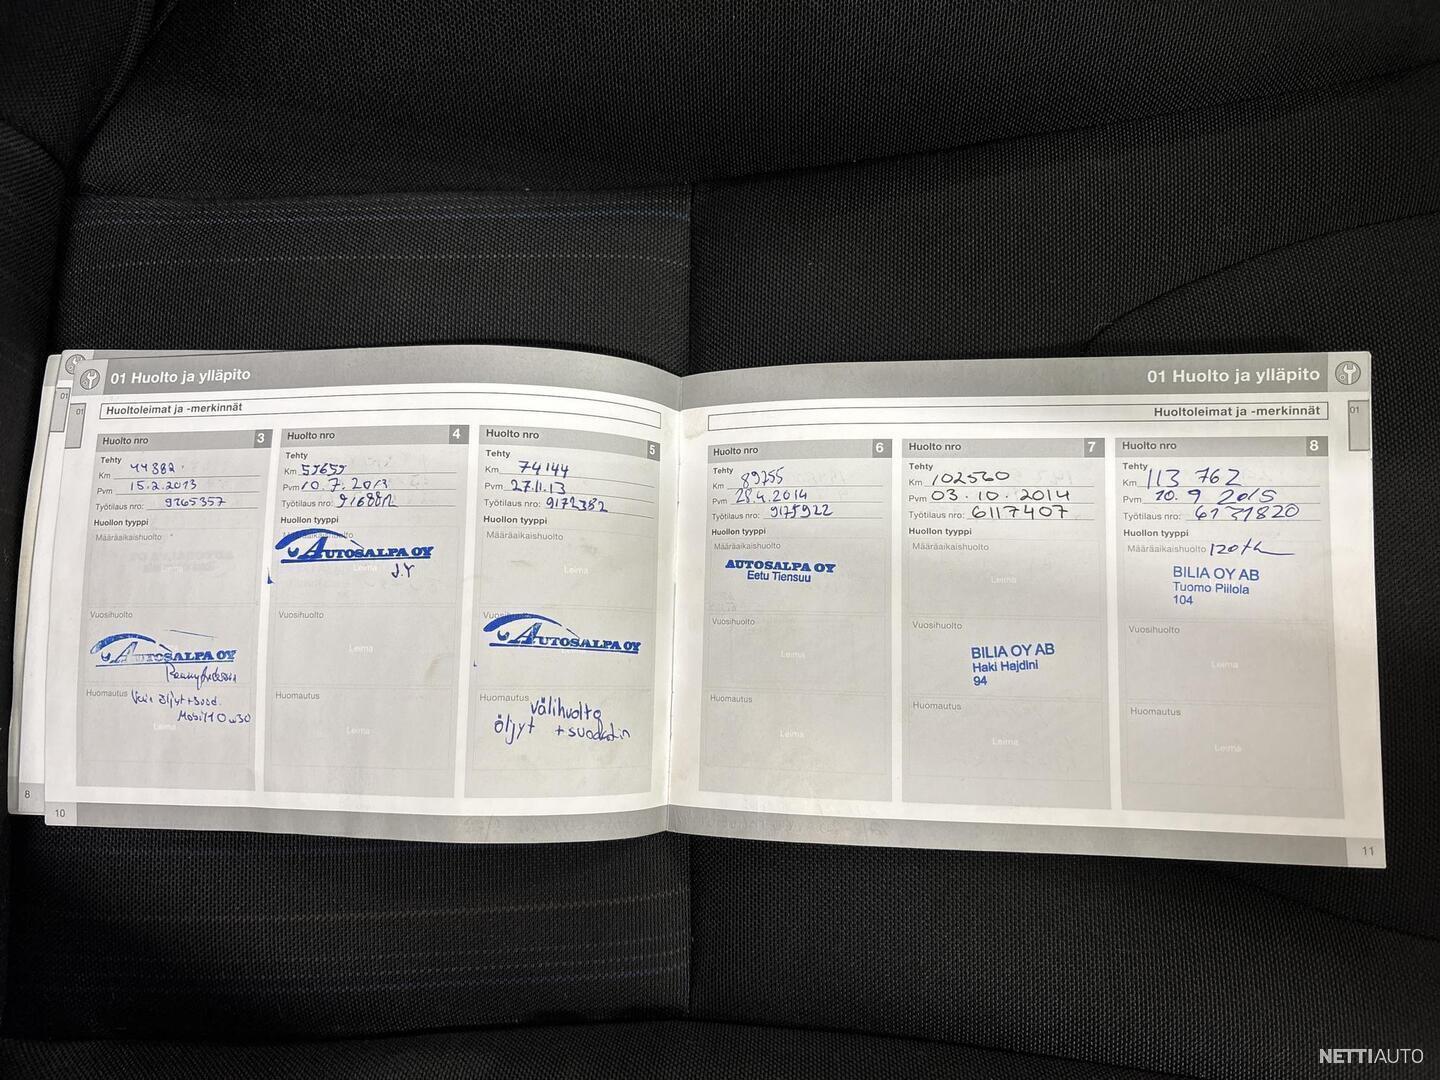 01 Huolto ja ylläpito
Huoltoleimat ja -merkinnät
Huolto nro 3
Tehty
Km 44882
Pvm 15.2.2013
Työtilaus nro: 9265357
Huollon tyyppi
Määräaikaishuolto
Leima
Vuosihuolto
AUTOSALPA OY
Huomautus
öljyt + suod.
Mobil 1 0w30
Leima
Huolto nro 4
Tehty
Km 59659
Pvm 10.7.2013
Työtilaus nro:
Huollon tyyppi
Määräaikaishuolto
AUTOSALPA OY
Leima J.Y
Vuosihuolto
Leima
Huomautus
Leima
Huolto nro 5
Tehty
Km 74144
Pvm 27.11.13
Työtilaus nro: 9172382
Huollon tyyppi
Määräaikaishuolto
Leima
Vuosihuolto
AUTOSALPA OY
Huomautus välihuolto
öljyt + suodatin
8
10
01 Huolto ja ylläpito
Huoltoleimat ja -merkinnät
Huolto nro 6
Tehty
Km 89255
Pvm 28.4.2014
Työtilaus nro: 9175922
Huollon tyyppi
Määräaikaishuolto
AUTOSALPA OY
Eetu Tiensuu
Vuosihuolto
Leima
Huomautus
Leima
Huolto nro 7
Tehty
Km 102560
Pvm 03.10.2014
Työtilaus nro: 6117407
Huollon tyyppi
Määräaikaishuolto
Leima
Vuosihuolto
BILIA OY AB
Haki Hajdini
94
Huomautus
Leima
Huolto nro 8
Tehty
Km 113 762
Pvm 10.9.2015
Työtilaus nro: 6131820
Huollon tyyppi
Määräaikaishuolto 120tkm
BILIA OY AB
Tuomo Piilola
104
Vuosihuolto
Leima
Huomautus
Leima
01
11
NETTIAUTO